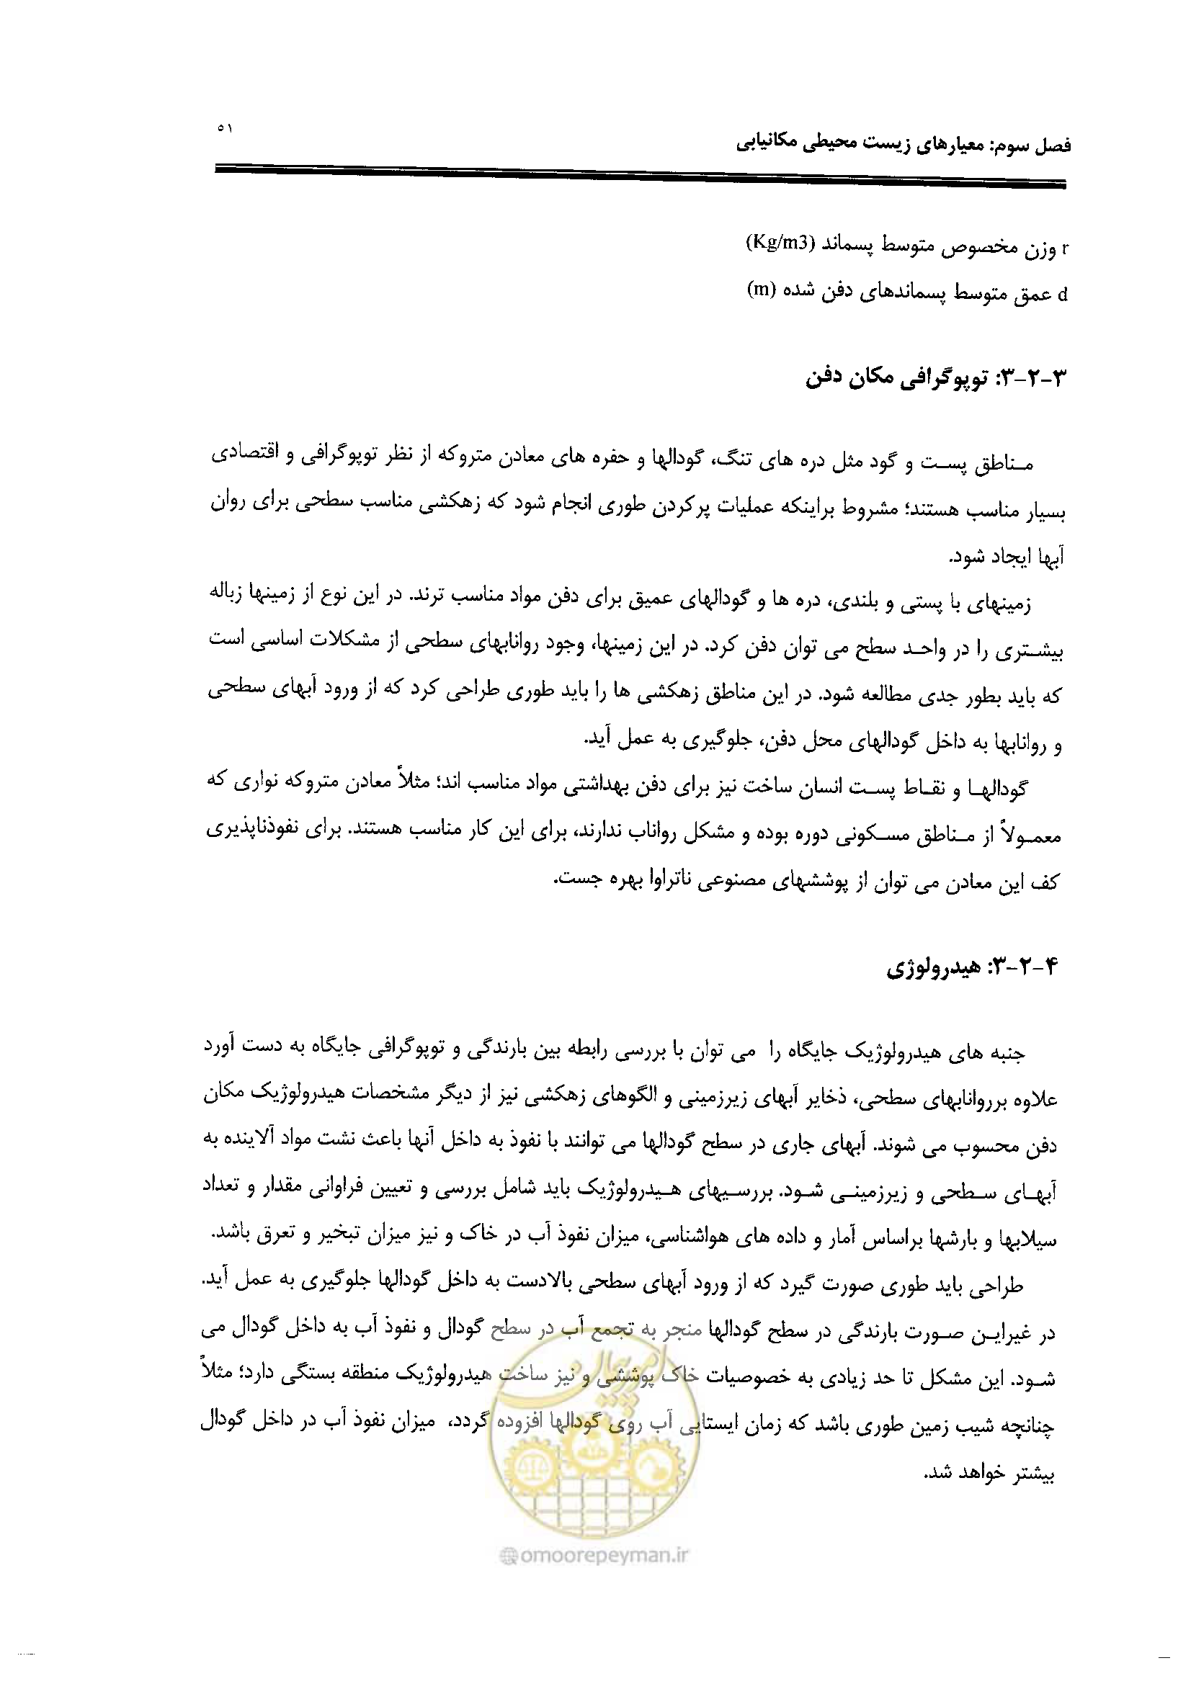 ۵۱
فصل سوم: معیارهای زیست محیطی مکانیابی
r وزن مخصوص متوسط پسماند (Kg/m3)
d عمق متوسط پسماندهای دفن شده (m)
۳-۲-۳: توپوگرافی مکان دفن
مناطق پست و گود مثل دره های تنگ، گودالها و حفره های معادن متروکه از نظر توپوگرافی و اقتصادی
بسیار مناسب هستند؛ مشروط براینکه عملیات پرکردن طوری انجام شود که زهکشی مناسب سطحی برای روان
آبها ایجاد شود.
زمینهای با پستی و بلندی، دره ها و گودالهای عمیق برای دفن مواد مناسب ترند. در این نوع از زمینها زباله
بیشتری را در واحد سطح می توان دفن کرد. در این زمینها، وجود روانابهای سطحی از مشکلات اساسی است
که باید بطور جدی مطالعه شود. در این مناطق زهکشی ها را باید طوری طراحی کرد که از ورود آبهای سطحی
و روانابها به داخل گودالهای محل دفن، جلوگیری به عمل آید.
گودالها و نقاط پست انسان ساخت نیز برای دفن بهداشتی مواد مناسب اند؛ مثلاً معادن متروکه نواری که
معمولاً از مناطق مسکونی دوره بوده و مشکل رواناب ندارند، برای این کار مناسب هستند. برای نفوذناپذیری
کف این معادن می توان از پوششهای مصنوعی ناتراوا بهره جست.
۳-۲-۴: هیدرولوژی
جنبه های هیدرولوژیک جایگاه را می توان با بررسی رابطه بین بارندگی و توپوگرافی جایگاه به دست آورد
علاوه برروانابهای سطحی، ذخایر آبهای زیرزمینی و الگوهای زهکشی نیز از دیگر مشخصات هیدرولوژیک مکان
دفن محسوب می شوند. آبهای جاری در سطح گودالها می توانند با نفوذ به داخل آنها باعث نشت مواد آلاینده به
آبهای سطحی و زیرزمینی شود. بررسیهای هیدرولوژیک باید شامل بررسی و تعیین فراوانی مقدار و تعداد
سیلابها و بارشها براساس آمار و داده های هواشناسی، میزان نفوذ آب در خاک و نیز میزان تبخیر و تعرق باشد.
طراحی باید طوری صورت گیرد که از ورود آبهای سطحی بالادست به داخل گودالها جلوگیری به عمل آید.
در غیراین صورت بارندگی در سطح گودالها منجر به تجمع آب در سطح گودال و نفوذ آب به داخل گودال می
شود. این مشکل تا حد زیادی به خصوصیات خاک پوششی و نیز ساخت هیدرولوژیک منطقه بستگی دارد؛ مثلاً
چنانچه شیب زمین طوری باشد که زمان ایستایی آب روی گودالها افزوده گردد، میزان نفوذ آب در داخل گودال
بیشتر خواهد شد.
امور پیمان
@omoorepeyman.ir